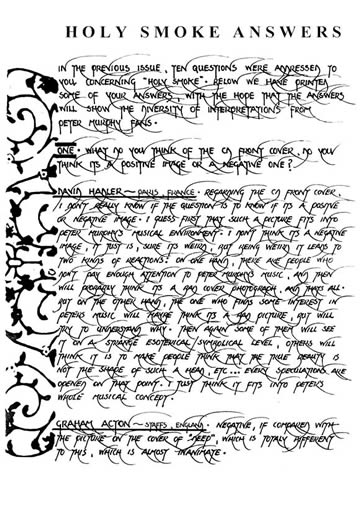 HOLY SMOKE ANSWERS
IN THE PREVIOUS ISSUE, TEN QUESTIONS WERE ADDRESSED TO
YOU CONCERNING "HOLY SMOKE". BELOW WE HAVE PRINTED
SOME OF YOUR ANSWERS, WITH THE HOPE THAT THE ANSWERS
WILL SHOW THE DIVERSITY OF INTERPRETATIONS FROM
PETER MURPHY FANS.
ONE. WHAT DO YOU THINK OF THE CD FRONT COVER, DO YOU
THINK ITS A POSITIVE IMAGE OR A NEGATIVE ONE?
DAVID HADLER ~ PARIS, FRANCE. REGARDING THE CD FRONT COVER,
I DON'T REALLY KNOW IF THE QUESTION IS TO KNOW IF ITS A POSITIVE
OR NEGATIVE IMAGE. I GUESS FIRST THAT SUCH A PICTURE FITS INTO
PETER MURPHY'S MUSICAL ENVIRONMENT. I DON'T THINK ITS A NEGATIVE
IMAGE, IT JUST IS, SURE ITS WEIRD, BUT BEING WEIRD IT LEADS TO
TWO KINDS OF REACTIONS: ON ONE HAND, THERE ARE PEOPLE WHO
DON'T PAY ENOUGH ATTENTION TO PETER MURPHY'S MUSIC, AND THEN
WILL PROBABLY THINK ITS A BAD COVER PHOTOGRAPH, AND THATS ALL.
BUT ON THE OTHER HAND, THE ONE WHO FINDS SOME INTEREST IN
PETERS MUSIC WILL MAYBE THINK ITS A BAD PICTURE, BUT WILL
TRY TO UNDERSTAND WHY. THEN AGAIN SOME OF THEM WILL SEE
IT ON A STRANGE ESOTERICAL/SYMBOLICAL LEVEL, OTHERS WILL
THINK IT IS TO MAKE PEOPLE THINK THAT THE TRUE REALITY IS
NOT THE SHAPE OF SUCH A HEAD, ETC... EVERY SPECULATIONS ARE
OPENED ON THAT POINT. I JUST THINK IT FITS INTO PETER'S
WHOLE MUSICAL CONCEPT.
GRAHAM ACTON ~ STAFFS, ENGLAND. NEGATIVE, IF COMPARED WITH
THE PICTURE ON THE COVER OF "DEEP", WHICH IS TOTALY DIFFERENT
TO THIS, WHICH IS ALMOST INANIMATE.